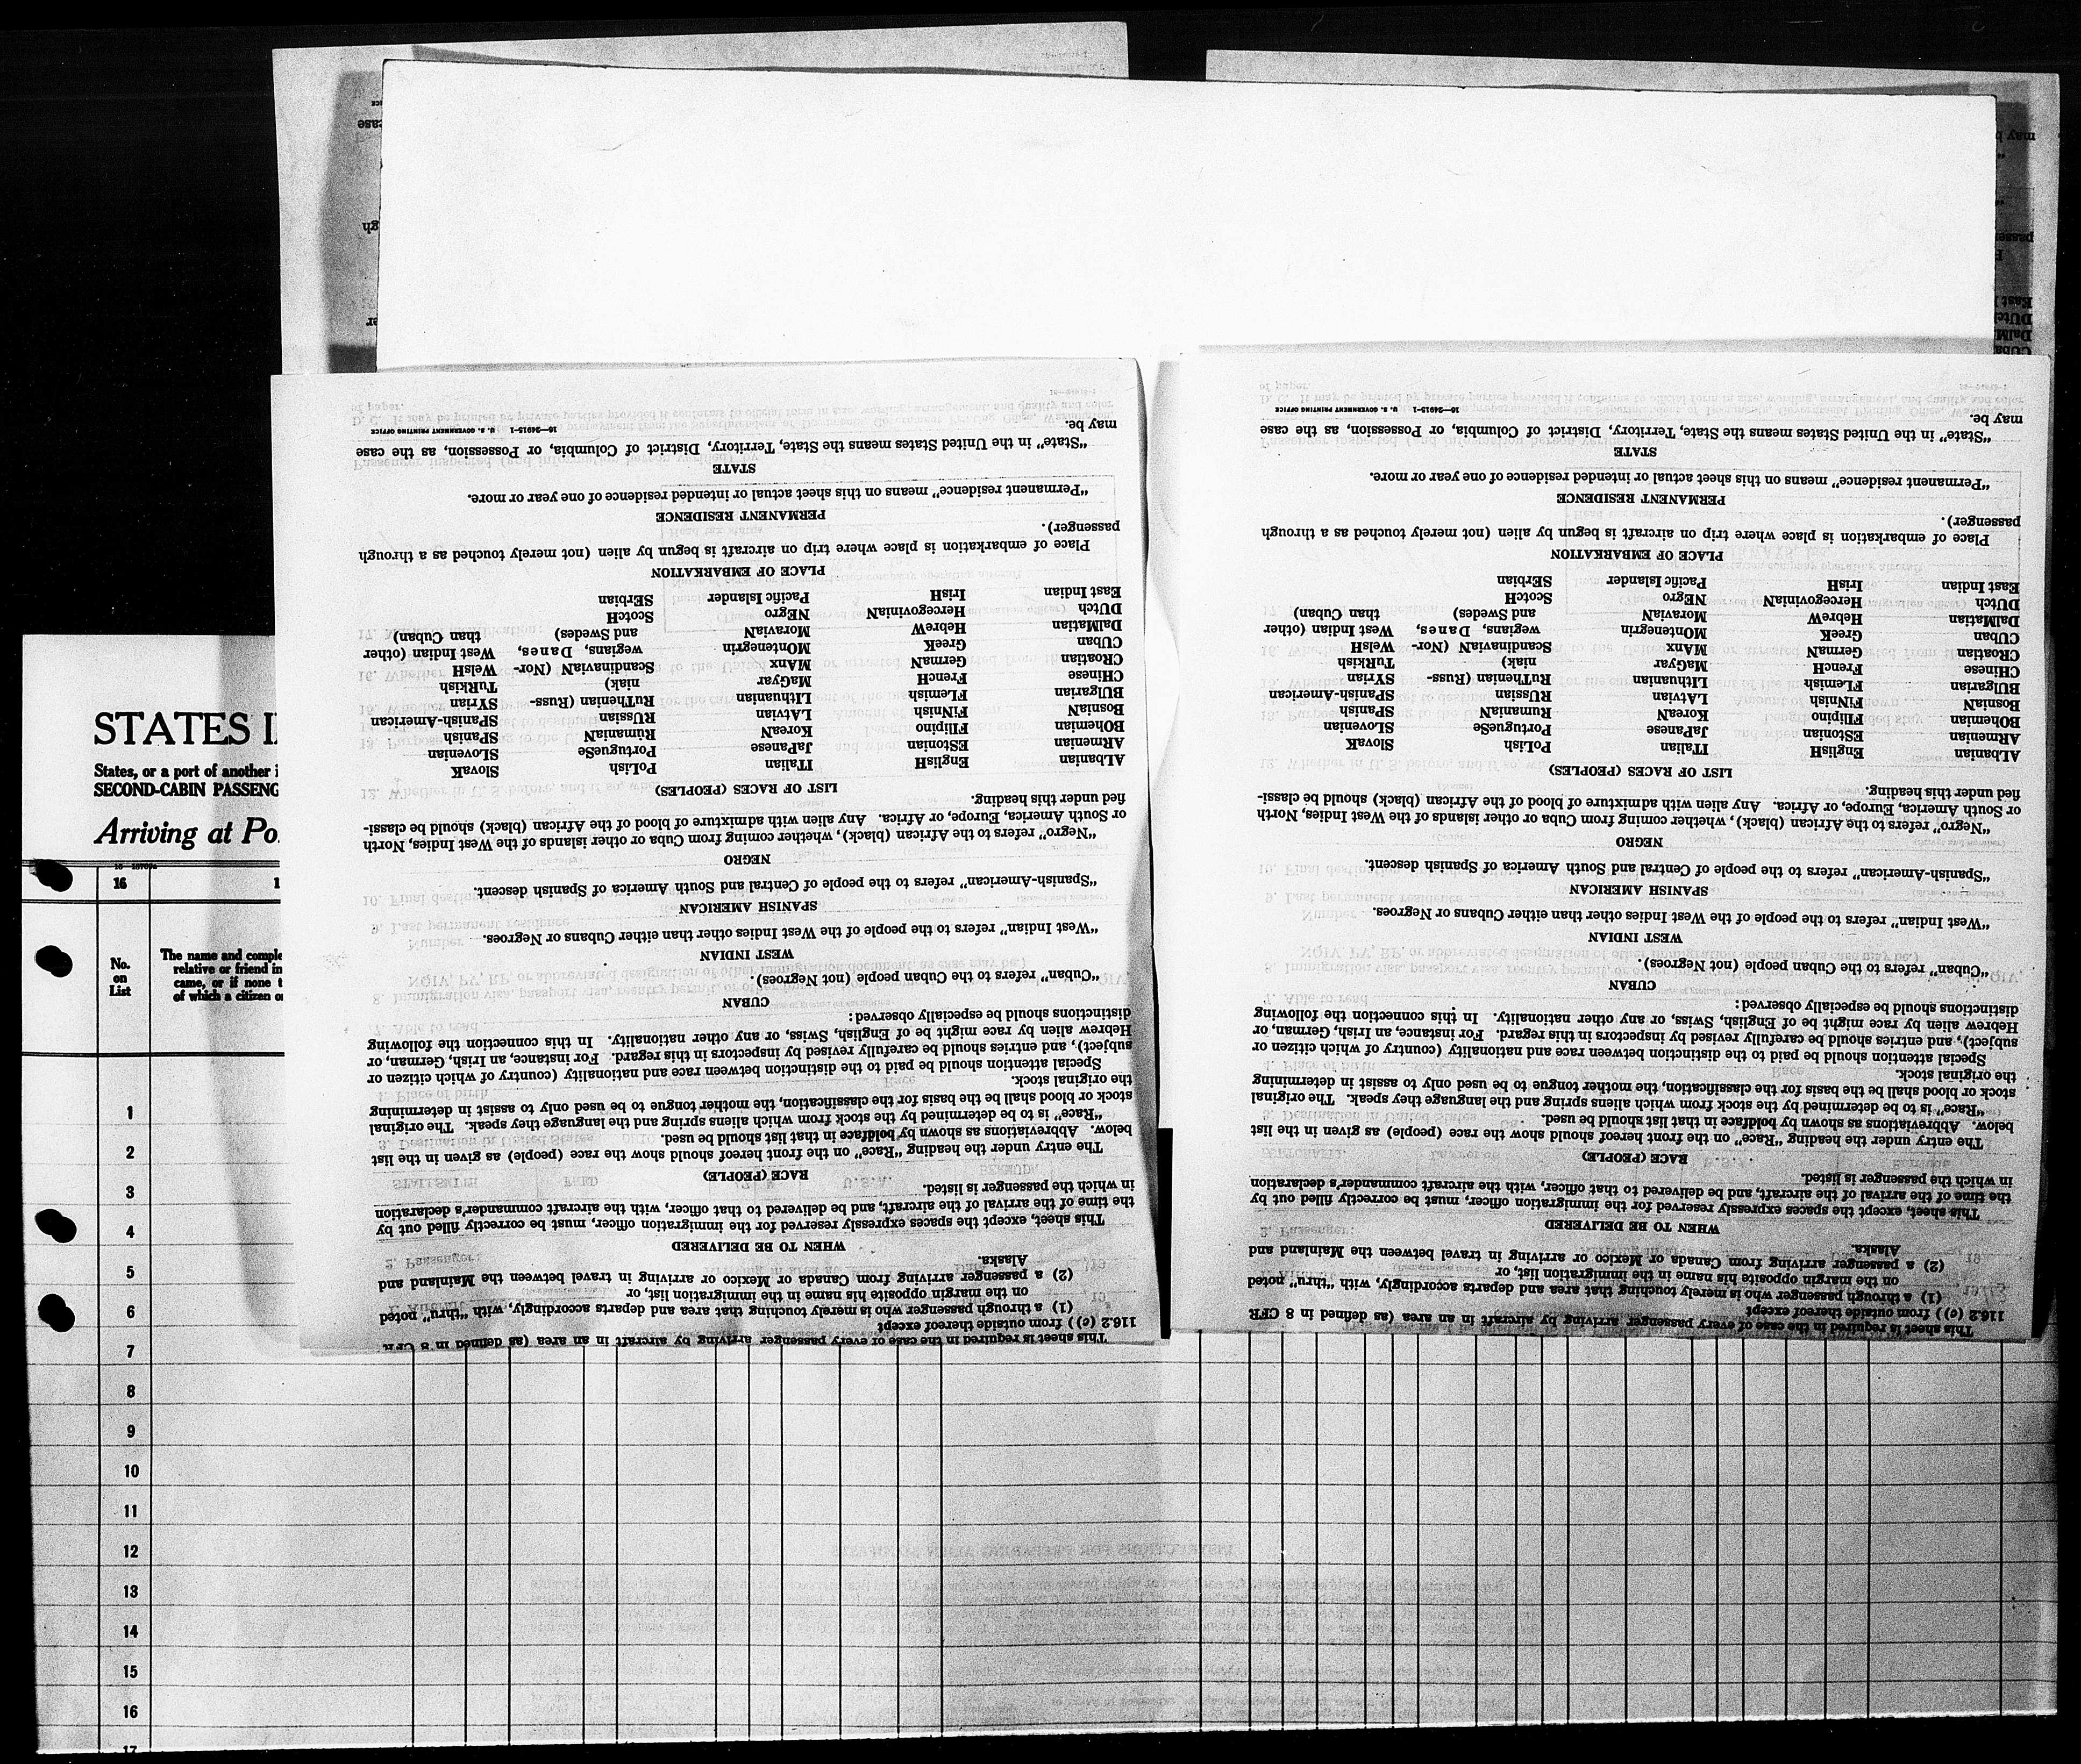 STATES I
States, or a port of another i
SECOND-CABIN PASSENG
Arriving at Po
16
No.
on
List
The name and comple
relative or friend in
came, or if none t
of which a citizen o
1
2
3
4
5
6
7
8
9
10
11
12
13
14
15
16
17
This sheet is required in the case of every passenger arriving by aircraft in an area (as defined in 8 CFR
116.2 (c)) from outside thereof except
(1) a through passenger who is merely touching that area and departs accordingly, with "thru" noted
on the margin opposite his name in the immigration list, or
(2) a passenger arriving from Canada or Mexico or arriving in travel between the Mainland and
Alaska.
WHEN TO BE DELIVERED
This sheet, except the spaces expressly reserved for the immigration officer, must be correctly filled out by
the time of the arrival of the aircraft, and be delivered to that officer, with the aircraft commander's declaration
in which the passenger is listed.
RACE (PEOPLE)
The entry under the heading "Race" on the front hereof should show the race (people) as given in the list
below. Abbreviations as shown by boldface in that list should be used.
"Race" is to be determined by the stock from which aliens spring and the language they speak. The original
stock or blood shall be the basis for the classification, the mother tongue to be used only to assist in determining
the original stock.
Special attention should be paid to the distinction between race and nationality (country of which citizen or
subject), and entries should be carefully revised by inspectors in this regard. For instance, an Irish, German, or
Hebrew alien by race might be of English, Swiss, or any other nationality. In this connection the following
distinctions should be especially observed:
CUBAN
"Cuban" refers to the Cuban people (not Negroes).
WEST INDIAN
"West Indian" refers to the people of the West Indies other than either Cubans or Negroes.
SPANISH AMERICAN
"Spanish-American" refers to the people of Central and South America of Spanish descent.
NEGRO
"Negro" refers to the African (black), whether coming from Cuba or other islands of the West Indies, North
or South America, Europe, or Africa. Any alien with admixture of blood of the African (black) should be classi-
fied under this heading.
LIST OF RACES (PEOPLES)
ALbanian EnglisH ITalian PoLish SlovaK
ARmenian EStonian JaPanese PortugueSe SLovenian
BOhemian FIlipino KoreaN RumaniaN SPanish
BosniaN FiNnish LAtvian RUssian SPanish-American
BUlgarian FLemish LIthuanian RuThenian (Russ- SYrian
CHinese FrencH MaGyar niak) TuRkish
CROatian GermaN MAnx ScandinaviaN (Nor- WelsH
CUban GreeK MOntenegrin wegians, Danes, West Indian (other
DalMatian HebreW MoraviaN and Swedes) than Cuban)
DUtch HercegovinniaN NEgro ScotcH
East Indian IrisH Pacific Islander SErbian
PLACE OF EMBARKATION
Place of embarkation is place where trip on aircraft is begun by alien (not merely touched as a through
passenger).
PERMANENT RESIDENCE
"Permanent residence" means on this sheet actual or intended residence of one year or more.
STATE
"State" in the United States means the State, Territory, District of Columbia, or Possession, as the case
may be.
16—24915-1 U. S. GOVERNMENT PRINTING OFFICE
This sheet is required in the case of every passenger arriving by aircraft in an area (as defined in 8 CFR
116.2 (c)) from outside thereof except
(1) a through passenger who is merely touching that area and departs accordingly, with "thru" noted
on the margin opposite his name in the immigration list, or
(2) a passenger arriving from Canada or Mexico or arriving in travel between the Mainland and
Alaska.
WHEN TO BE DELIVERED
This sheet, except the spaces expressly reserved for the immigration officer, must be correctly filled out by
the time of the arrival of the aircraft, and be delivered to that officer, with the aircraft commander's declaration
in which the passenger is listed.
RACE (PEOPLE)
The entry under the heading "Race" on the front hereof should show the race (people) as given in the list
below. Abbreviations as shown by boldface in that list should be used.
"Race" is to be determined by the stock from which aliens spring and the language they speak. The original
stock or blood shall be the basis for the classification, the mother tongue to be used only to assist in determining
the original stock.
Special attention should be paid to the distinction between race and nationality (country of which citizen or
subject), and entries should be carefully revised by inspectors in this regard. For instance, an Irish, German, or
Hebrew alien by race might be of English, Swiss, or any other nationality. In this connection the following
distinctions should be especially observed:
CUBAN
"Cuban" refers to the Cuban people (not Negroes).
WEST INDIAN
"West Indian" refers to the people of the West Indies other than either Cubans or Negroes.
SPANISH AMERICAN
"Spanish-American" refers to the people of Central and South America of Spanish descent.
NEGRO
"Negro" refers to the African (black), whether coming from Cuba or other islands of the West Indies, North
or South America, Europe, or Africa. Any alien with admixture of blood of the African (black) should be classi-
fied under this heading.
LIST OF RACES (PEOPLES)
ALbanian EnglisH ITalian PoLish SlovaK
ARmenian EStonian JaPanese PortugueSe SLovenian
BOhemian FIlipino KoreaN RumaniaN SPanish
BosniaN FiNnish LAtvian RUssian SPanish-American
BUlgarian FLemish LIthuanian RuThenian (Russ- SYrian
CHinese FrencH MaGyar niak) TuRkish
CROatian GermaN MAnx ScandinaviaN (Nor- WelsH
CUban GreeK MOntenegrin wegians, Danes, West Indian (other
DalMatian HebreW MoraviaN and Swedes) than Cuban)
DUtch HercegovinniaN NEgro ScotcH
East Indian IrisH Pacific Islander SErbian
PLACE OF EMBARKATION
Place of embarkation is place where trip on aircraft is begun by alien (not merely touched as a through
passenger).
PERMANENT RESIDENCE
"Permanent residence" means on this sheet actual or intended residence of one year or more.
STATE
"State" in the United States means the State, Territory, District of Columbia, or Possession, as the case
may be.
16—24915-1 U. S. GOVERNMENT PRINTING OFFICE